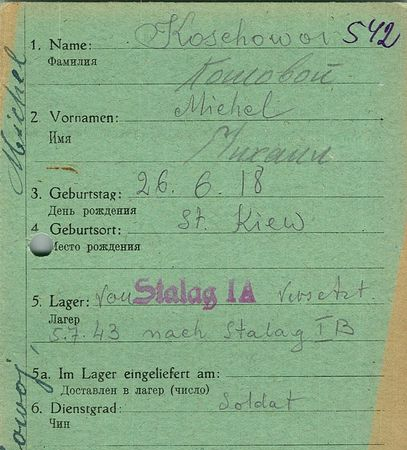 1. Name: Koschowoi 542
Фамилия
Кошовой
2. Vornamen: Michel
Имя
Михаил
3. Geburtstag: 26. 6. 18
День рождения
4. Geburtsort: St. Kiew
Место рождения
5. Lager: Von Stalag IA versetzt
Лагер
5.7.43 nach Stalag IB
5a. Im Lager eingeliefert am:
Доставлен в лагер (число)
6. Dienstgrad: Soldat
Чин
Michel